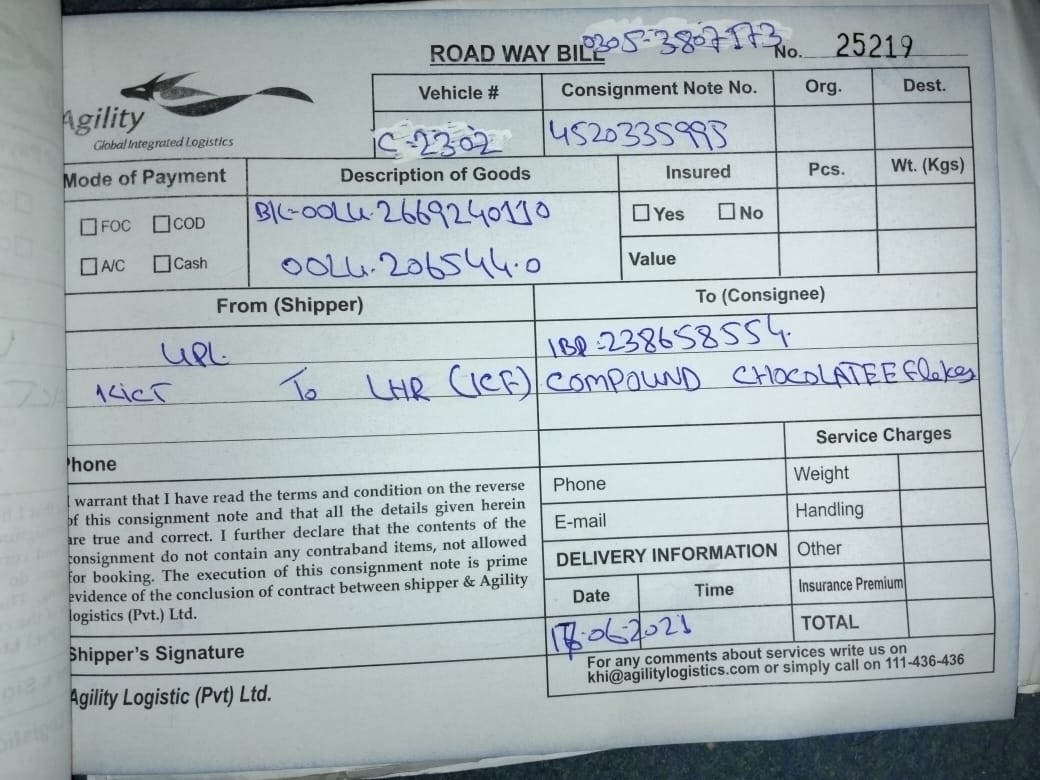 ROAD WAY BILL 0305-3807173 No. 25219
Agility
Global Integrated Logistics
Vehicle # Consignment Note No. Org. Dest.
C-2302 4520335995
Mode of Payment Description of Goods Insured Pcs. Wt. (Kgs)
FOC COD BK-OOLU.2669240110 Yes No
A/C Cash OOLU.206544.0 Value
From (Shipper) To (Consignee)
UPL. IBP-238658554.
KICT To LHR (ICF) COMPOUND CHOCOLATEE Flakes
Service Charges
Phone Phone Weight
I warrant that I have read the terms and condition on the reverse
of this consignment note and that all the details given herein
are true and correct. I further declare that the contents of the
consignment do not contain any contraband items, not allowed
for booking. The execution of this consignment note is prime
evidence of the conclusion of contract between shipper & Agility
logistics (Pvt.) Ltd.
E-mail Handling
DELIVERY INFORMATION Other
Date Time Insurance Premium
06-2021 TOTAL
Shipper's Signature
For any comments about services write us on
khi@agilitylogistics.com or simply call on 111-436-436
Agility Logistic (Pvt) Ltd.